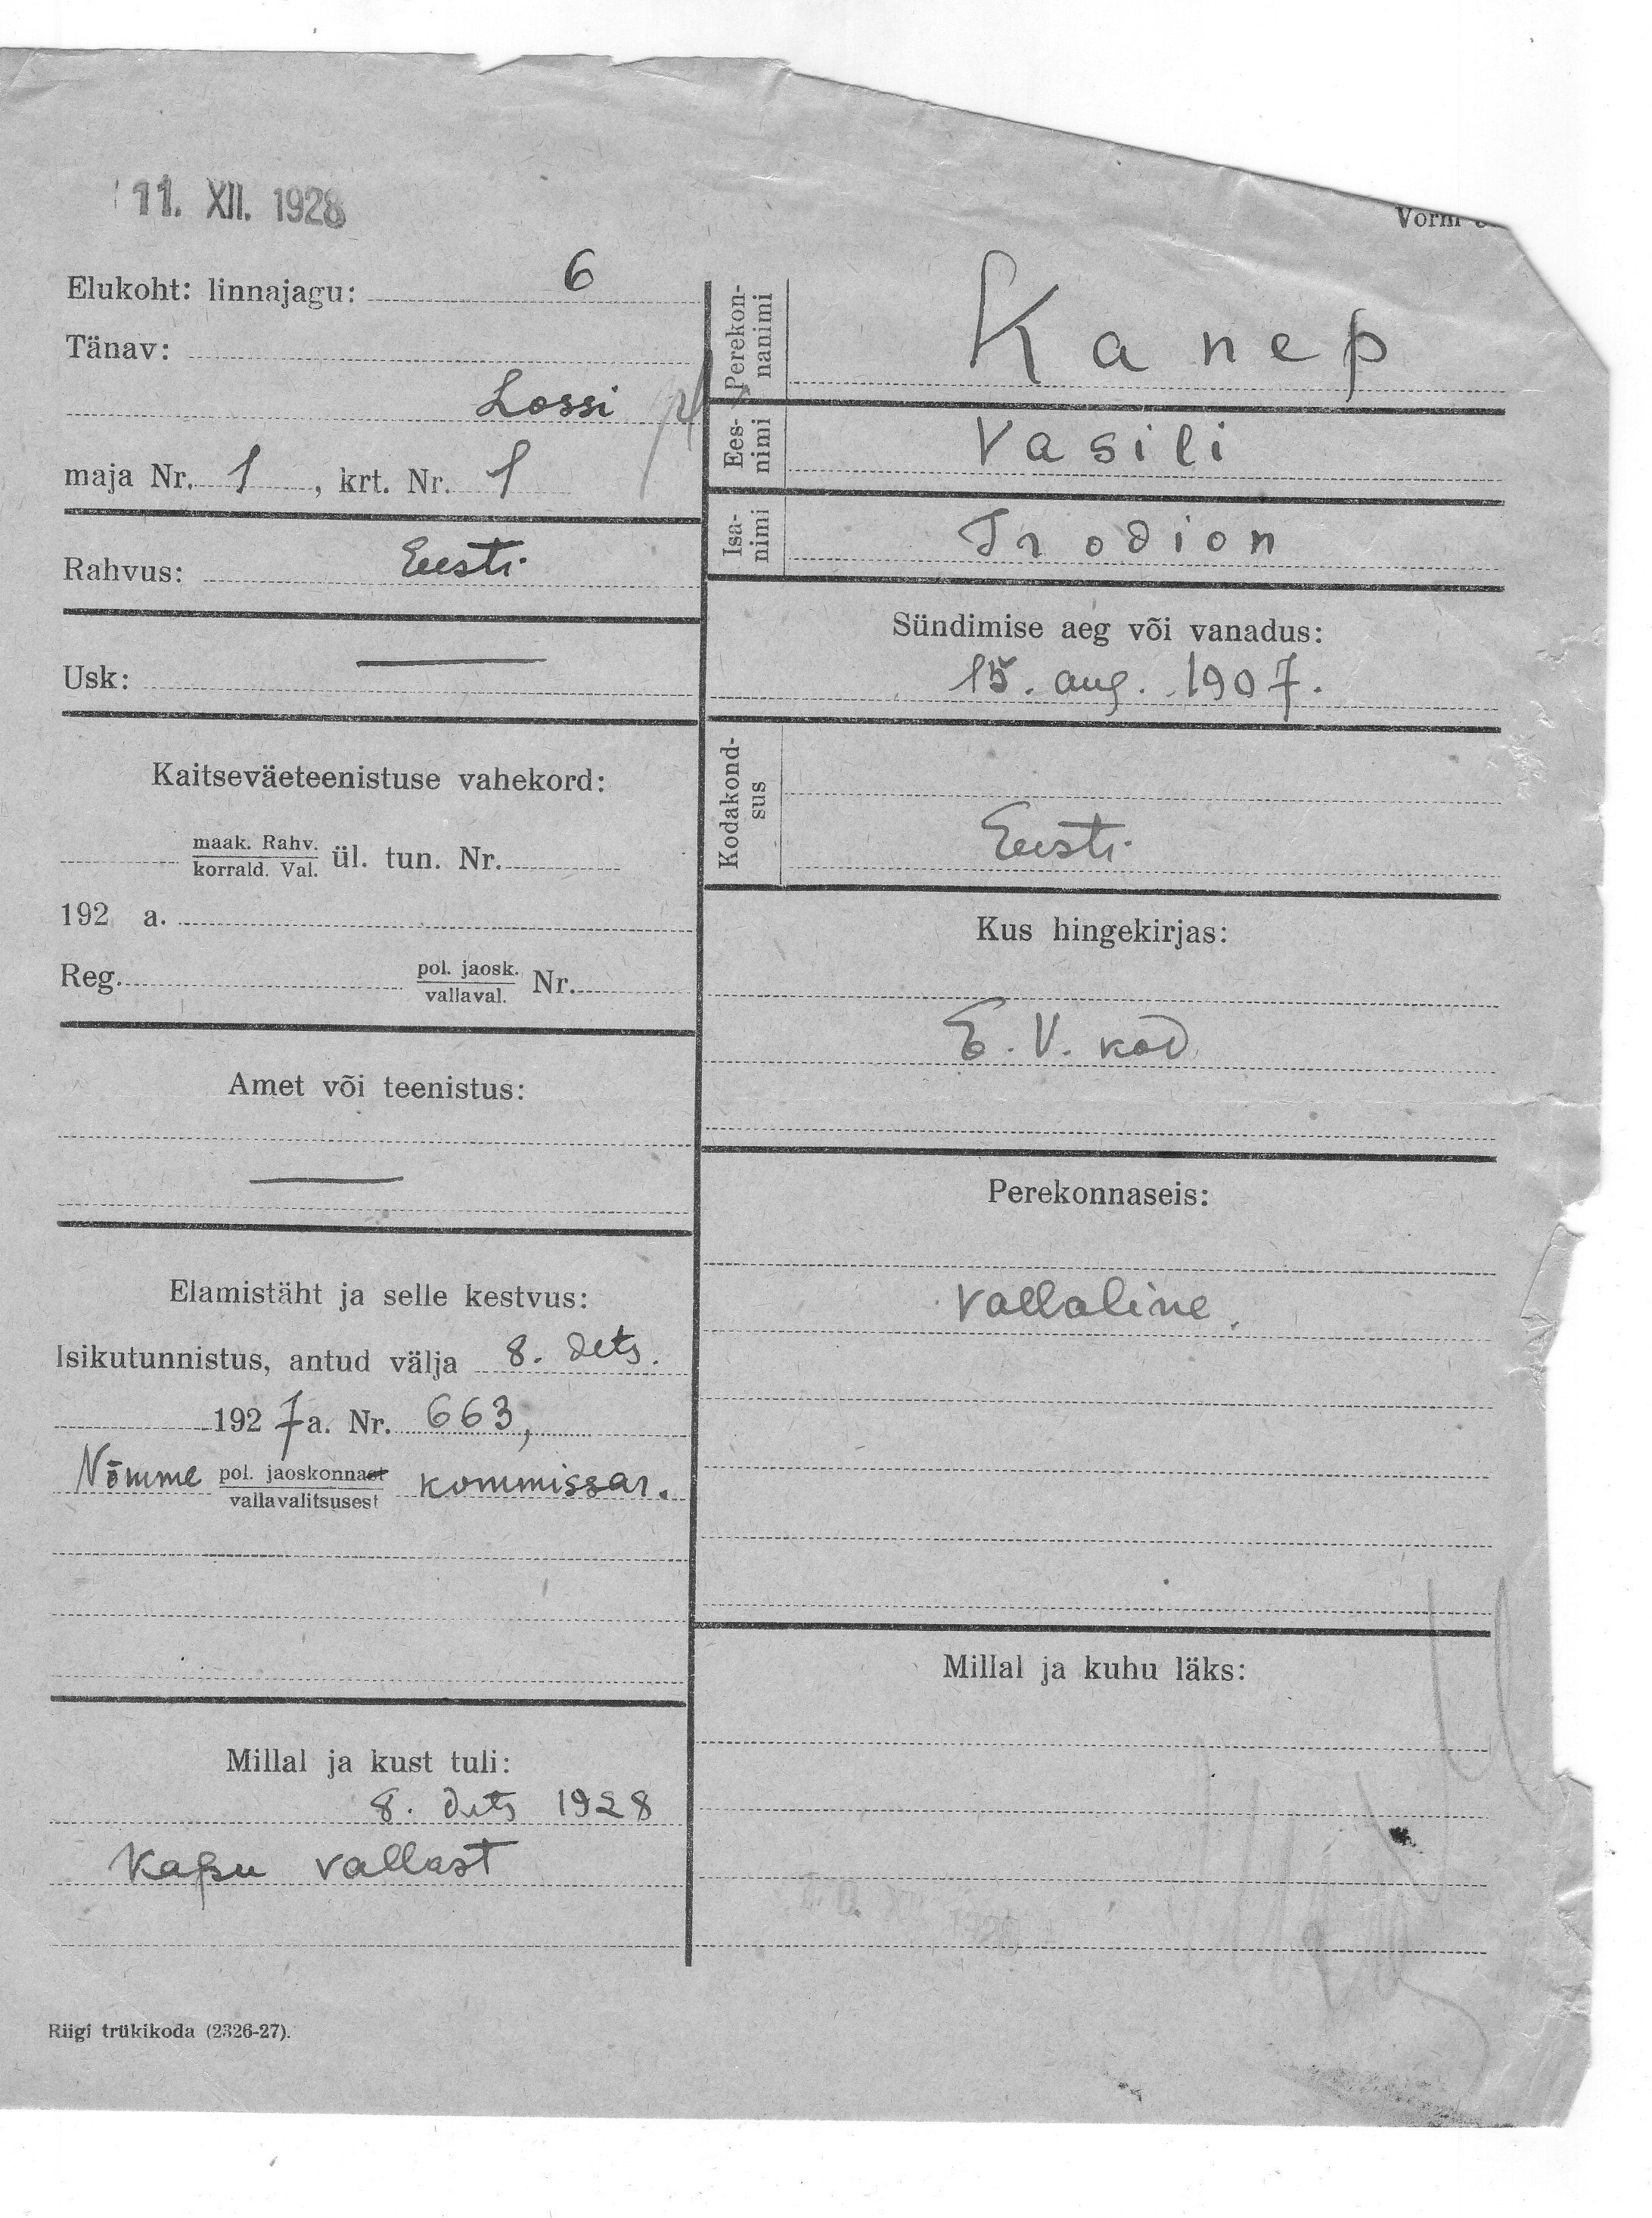 11. XII. 1928
Vorm
Elukoht: linnajagu: 6
Tänav:
Lossi
maja Nr. 1, krt. Nr. 1
Rahvus: Eesti
Usk: —
Kaitseväeteenistuse vahekord:
maak. Rahv.
korrald. Val. ül. tun. Nr.
192 a.
Reg. pol. jaosk.
vallaval. Nr.
Amet või teenistus:
—
Elamistäht ja selle kestvus:
Isikutunnistus, antud välja 8. dets.
1927 a. Nr. 663,
Nõmme pol. jaoskonnast kommissar.
vallavalitsusest
Millal ja kust tuli:
8. dets 1928
Kapu vallast
Riigi trükikoda (2326-27).
Perekon-
nanimi
Kanep
Ees-
nimi
Vasili
Isa-
nimi
Irodion
Sündimise aeg või vanadus:
15. aug. 1907.
Kodakond-
sus
Eesti
Kus hingekirjas:
E. V. kod
Perekonnaseis:
vallaline.
Millal ja kuhu läks: